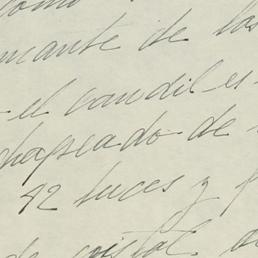 como
mante de los
el candil es
chapeado de
42 luces y
de cristal